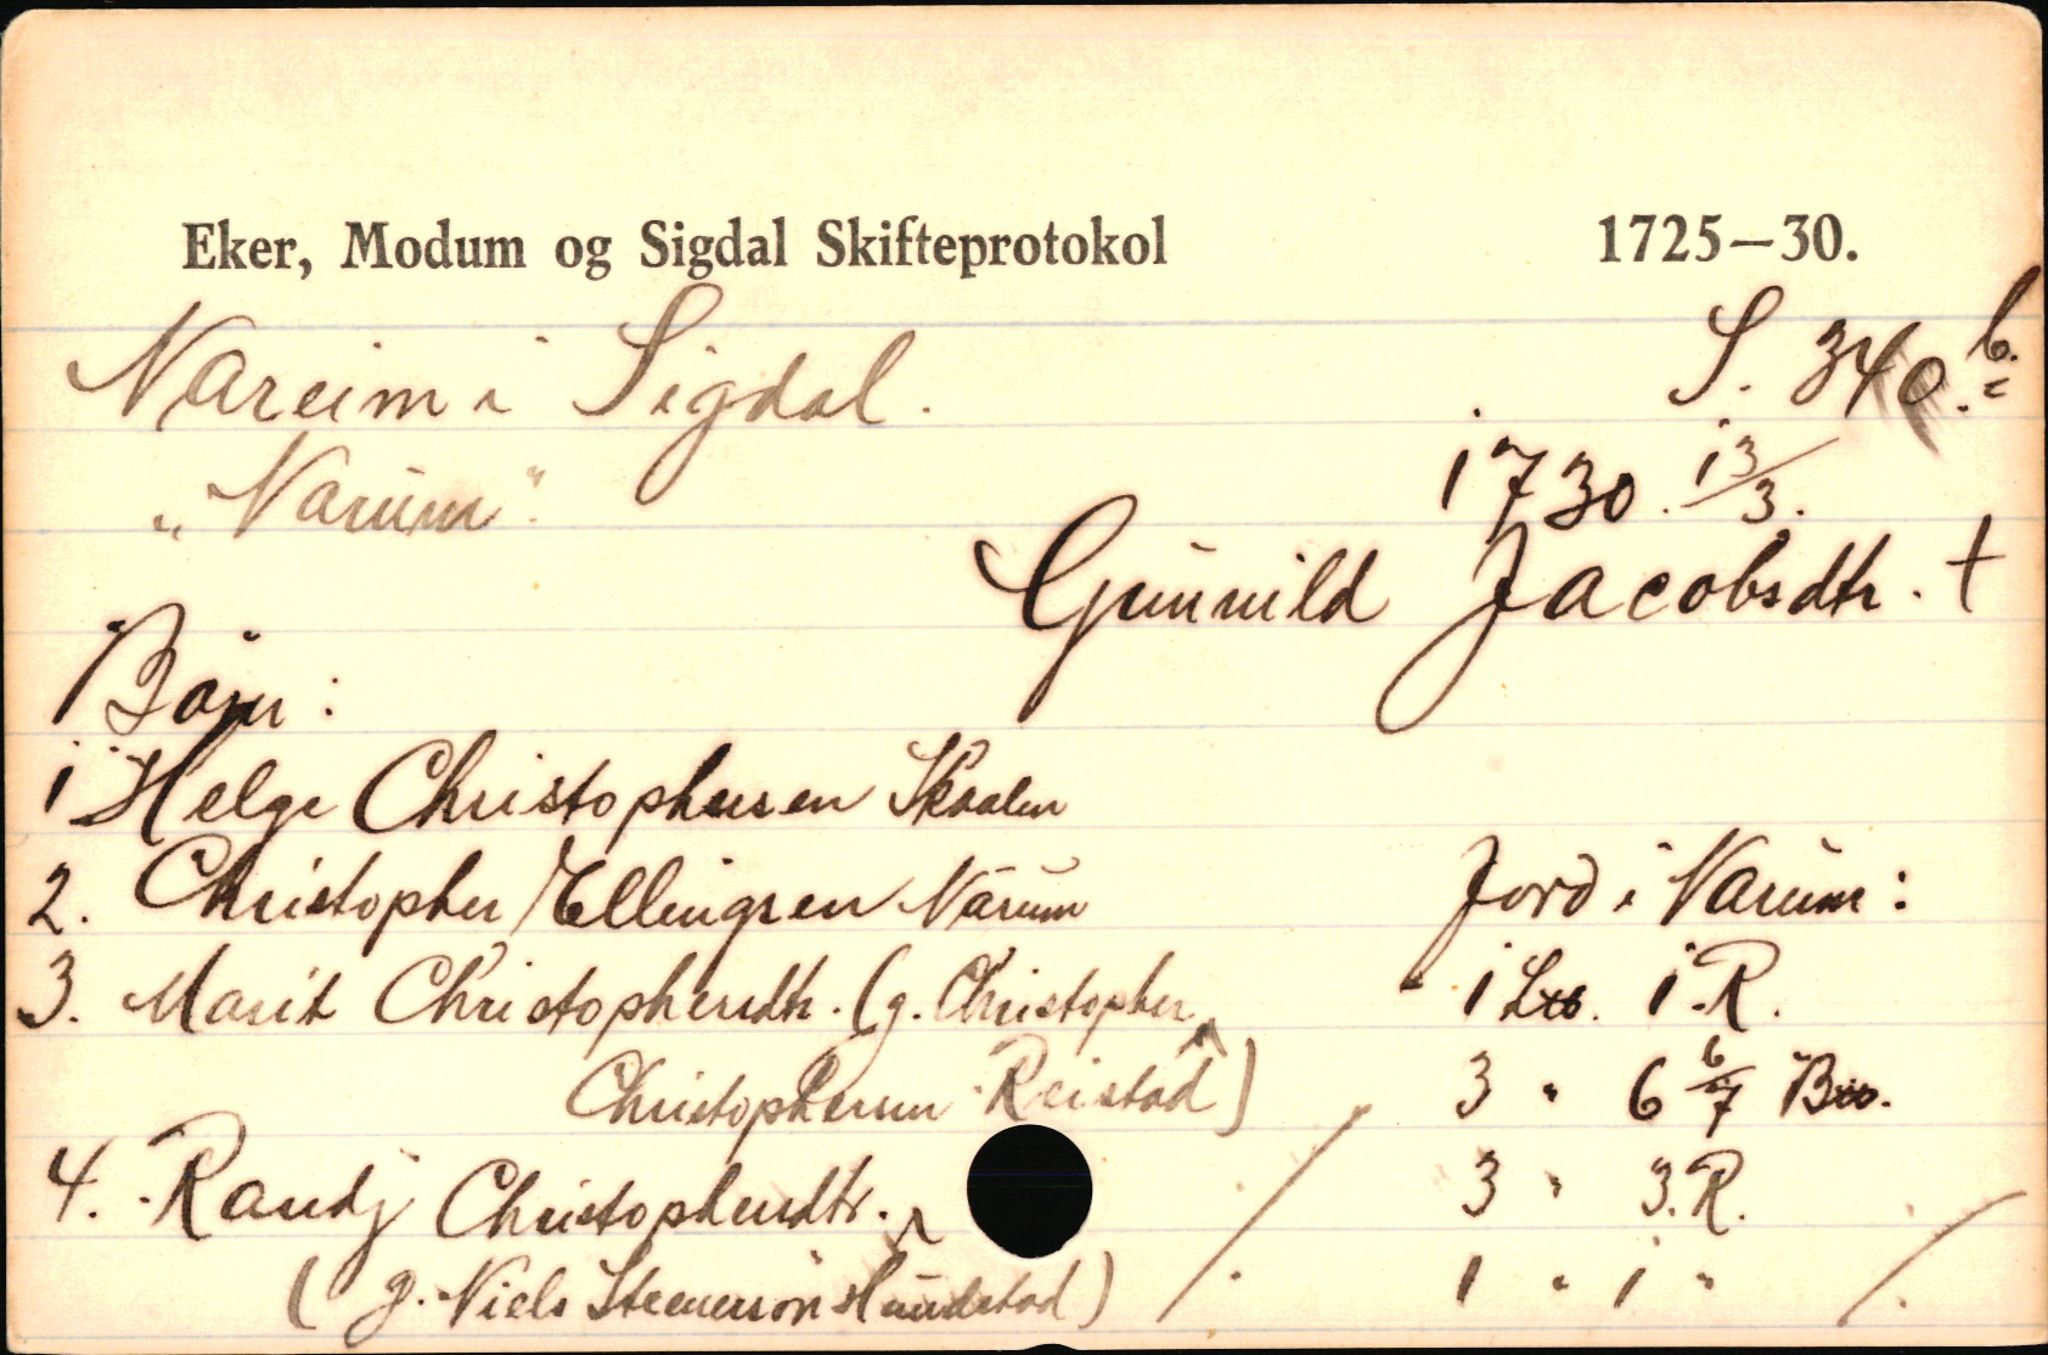 Eker, Modum og Sigdal Skifteprotokol 1725—30.
Nareim i Sigdal. S. 340.b.
„Narum“. 1730. 13/3.
Gunnild Jacobsdtr. †
Børn:
1 Helge Christophersen Skaalen
2. Christopher Ellingsen Narum Jord i Narum:
3. Marit Christophersdtr. (g. Christopher 1 Lss. 1 R.
Christophersen Reistad) 3 " 6 6/7 Bss.
4. Randj Christophersdtr. 3 " 3. R.
(g. Niels Steenersøn Hundstad) 1 " 1 "